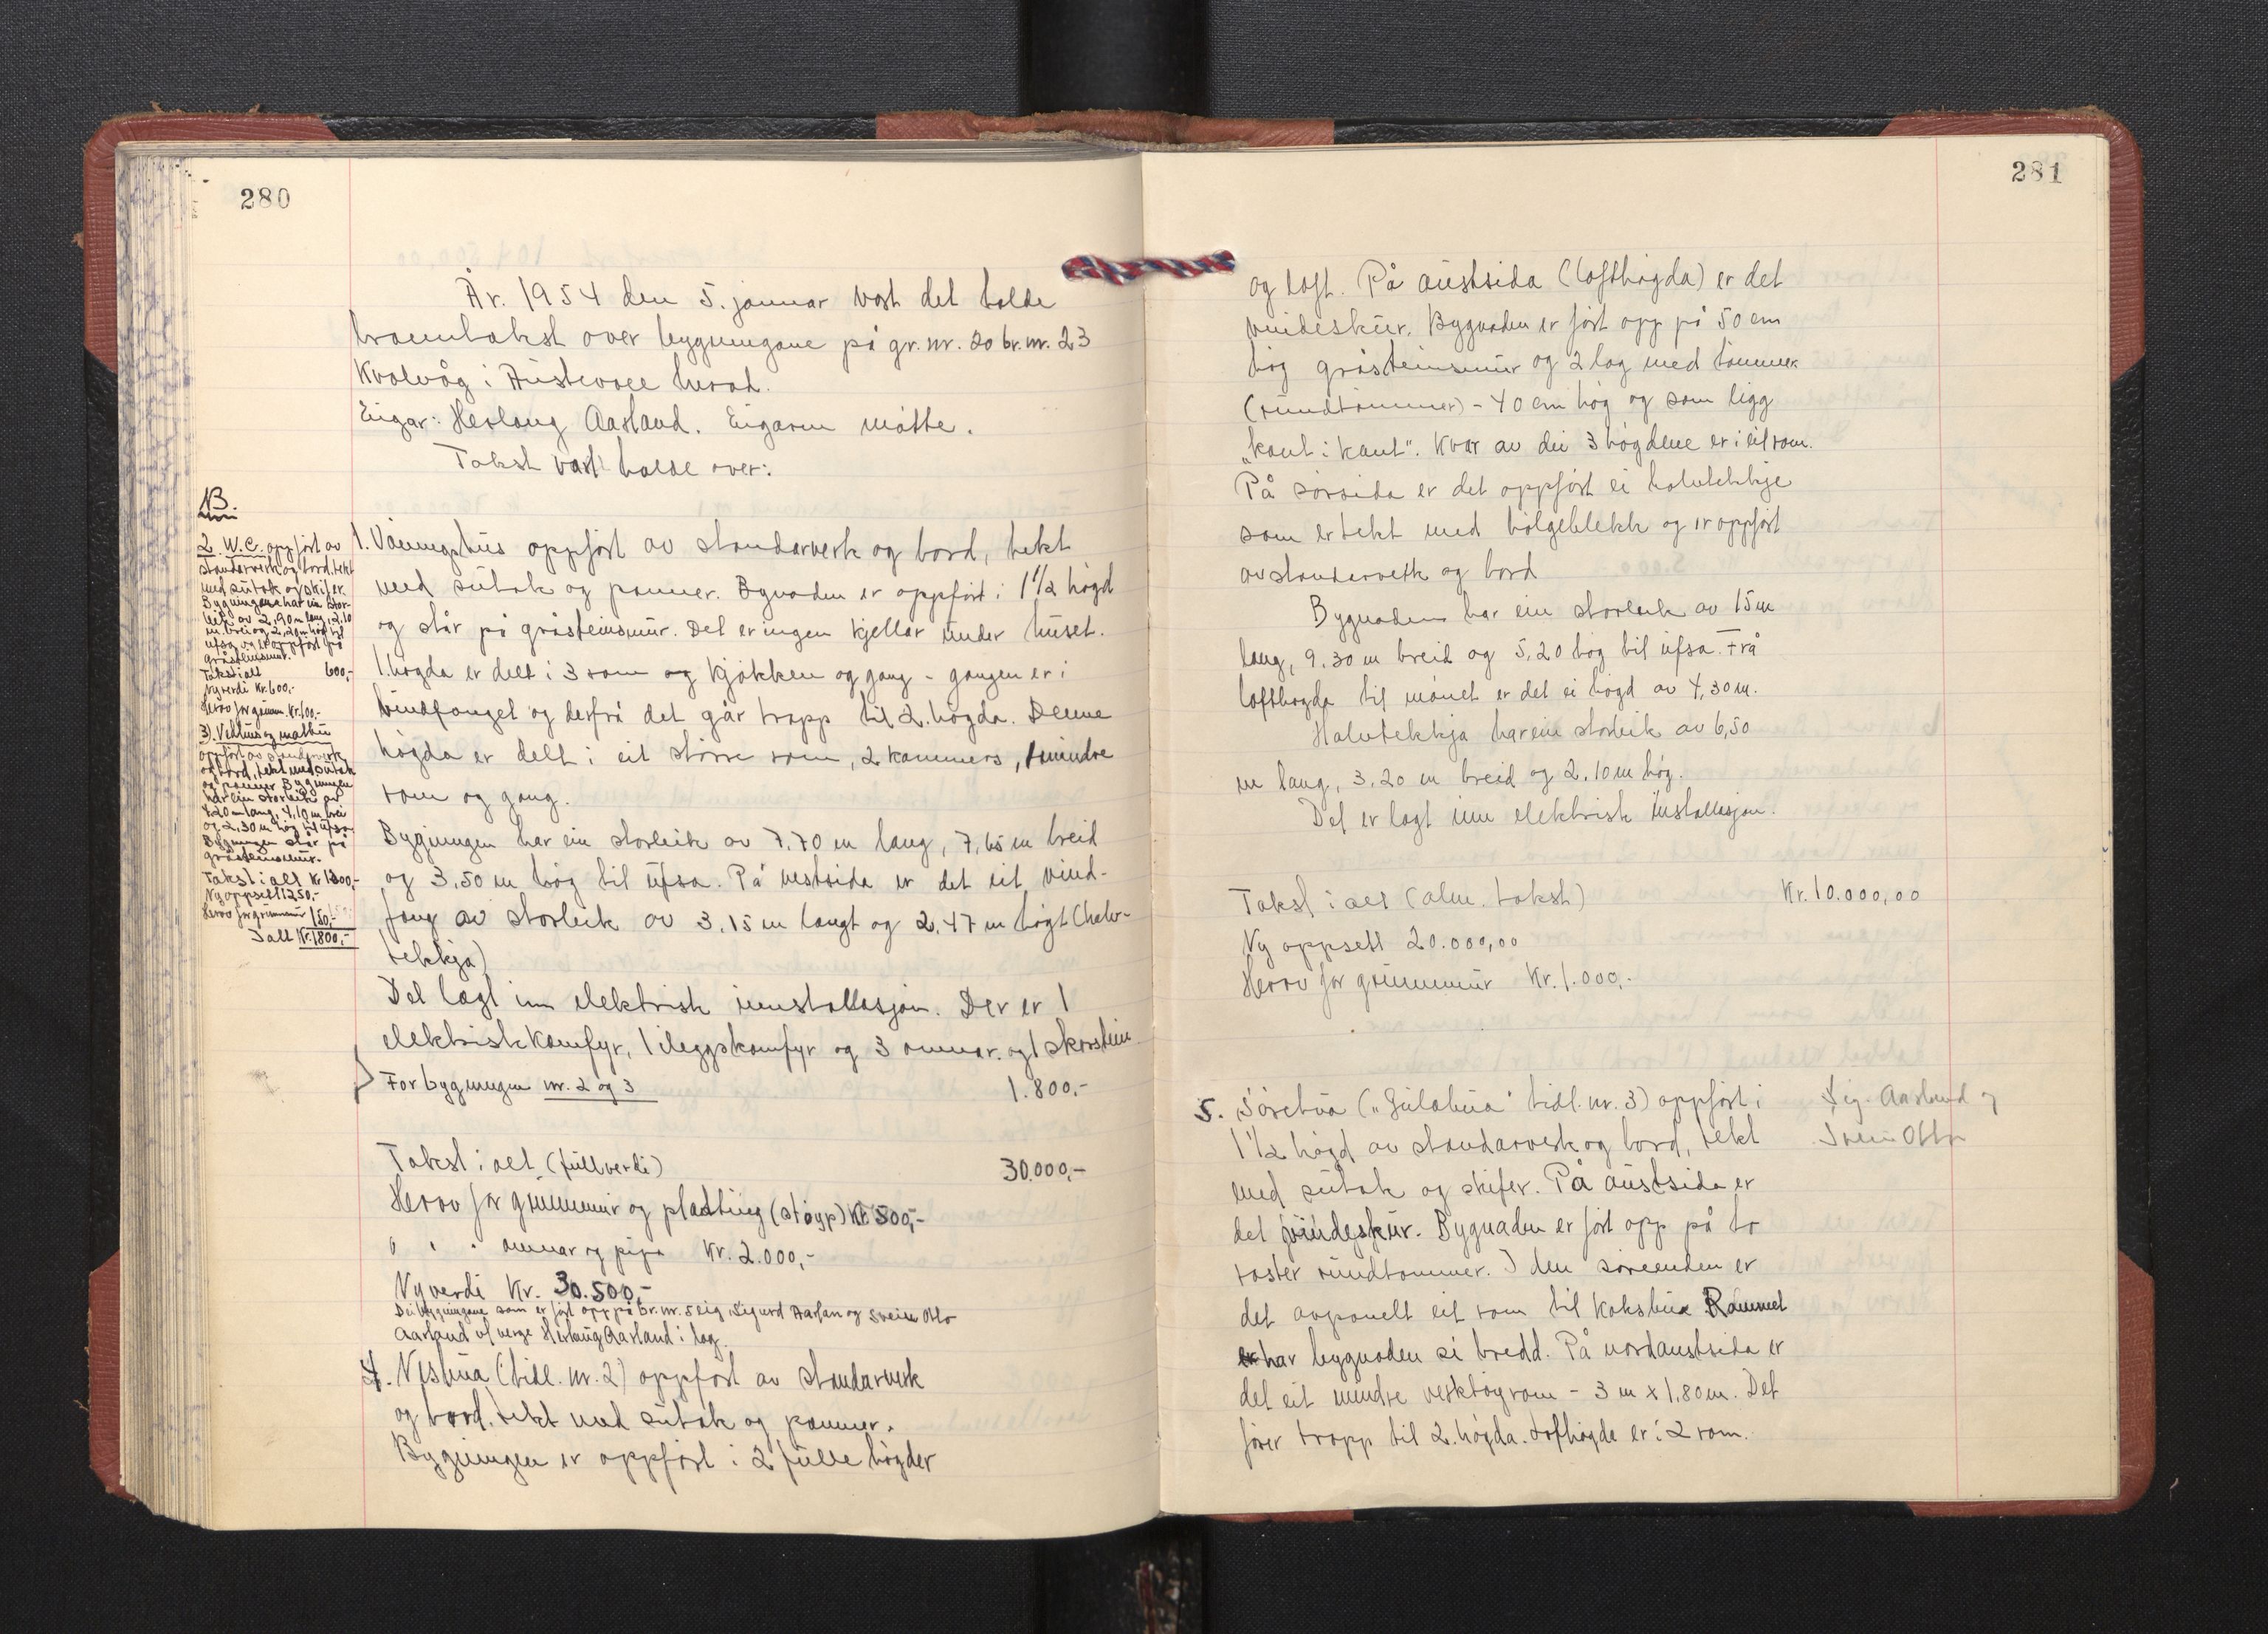 280
År. 1954 den 5. januar vart det halde
branntakst over bygningane på gr. nr. 20 br. nr. 23
Kvalvåg i Austevoll herad.
Eigar: Herlaug Aarland. Eigaren møtte.
Takst vart halde over:
NB.
2. W.C. oppført av
standarverk og bord, tekt
med sutak og skifer.
Bygningane har ein stor-
leik av 2,90 m lang, 2,10
m. brei og 2,20 m høg til
ufsa og er oppført på
gråsteinsmur.
Takst i alt 600,-
Nyverdi Kr. 600,-
Herav for grunnm. Kr. 100,-
3). Vedhus og mathus
oppført av standarverk
og bord, tekt med sutak
og panner. Bygningen
har ein storleik av
4,20 m lang, 4,10 m brei
og 2,30 m høg til ufsa.
Bygningen står på
gråsteinsmur.
Takst i alt Kr 1200,-
Ny oppsett 1250,-
Herav for grunnmur 150,-
I alt Kr. 1800,-
1. Våningshus oppført av standarverk og bord, tekt
med sutak og panner. Bygnaden er oppført i 1 1/2 høgd
og står på gråsteinsmur. Det er ingen kjellar under huset.
1. høgda er delt i 3 rom og kjøkken og gang - gangen er i
vindfanget og derfrå det går trapp til 2. høgda. Denne
høgda er delt i eit større rom, 2 kammers, 1 mindre
rom og gang.
Bygningen har ein storleik av 7,70 m lang, 7,65 m breid
og 3,50 m høg til ufsa. På vestsida er det eit vind-
fang av storleik av 3,15 m langt og 2,47 m høgt (halv-
tekkja)
Det lagt inn elektrisk innstallasjon. Der er 1
elektrisk komfyr, 1 ileggskomfyr og 3 omnar. og 1 skorstein
For bygningen nr. 2 og 3 1.800,-
Takst i alt (fullverdi) 30.000,-
Herav for grunnmur og platting (støyp) Kr 500,-
" " " omnar og pipe Kr. 2.000,-
Nyverdi Kr. 30.500,-
Dei bygningane som er ført opp på br. nr. 5 eig Sigurd Aarlan og Svein Otto
Aarland v/ verge Herlaug Aarland i lag.
4. Nestbua (tidl. nr. 2) oppført av standarverk
og bord, tekt med sutak og panner.
Bygningen er oppført i 2 fulle høgder
281
og loft. På austsida (lofthøgda) er det
vindeskur. Bygnaden er ført opp på 50 cm
høg gråsteinsmur og 2 lag med tømmer
(rundtømmer) - 40 cm høg og som ligg
„kant i kant". Kvar av dei 3 høgdene er i eit rom.
På sørsida er det oppført ei halvtekkje
som er tekt med bølgeblekk og er oppført
av standerverk og bord
Bygnaden har ein storleik av 15 m
lang, 9,30 m breid og 5,20 høg til ufsa. Frå
lofthøgda til mønet er det ei høgd av 4,30 m.
Halvtekkja har ein storleik av 6,50
m lang, 3,20 m breid og 2,10 m høg.
Det er lagt inn elektrisk installasjon.
Takst i alt (alm. takst) Kr. 10.000,00
Ny oppsett 20.000,00
Herav for grunnmur Kr. 1.000,-
5. Sørebua („Gulabua" tidl. nr. 3) oppført i
1 1/2 høgd av standarverk og bord, tekt
med sutak og skifer. På austsida er
det vindeskur. Bygnaden er ført opp på to
raster rundtømmer. I den søreenden er
det avpanelt eit rom til koksbua. Rommet
er har bygnaden si bredd. På nordaustsida er
det eit mindre verktøyrom - 3 m x 1,80 m. Det
fører trapp til 2. høgda. Lofthøgda er i 2 rom.
Sig. Aarland og
Svein Otto